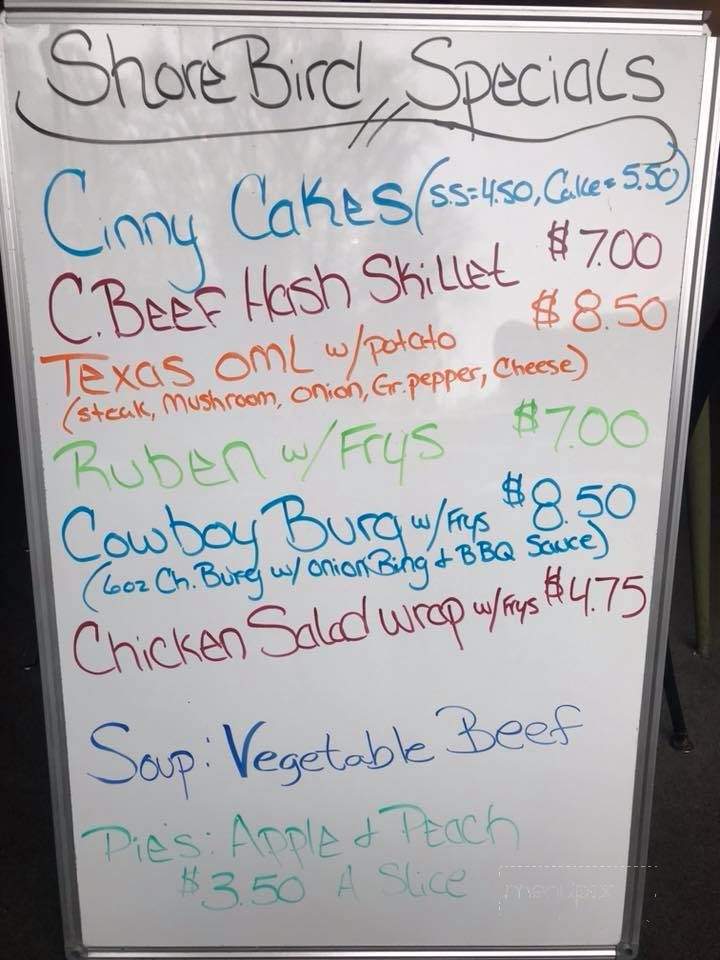 ShoreBird Specials
Cinny Cakes (S.S=4.50, Cake=5.50)
C.Beef Hash Skillet $7.00
Texas OML w/potato $8.50
(steak, Mushroom, onion, Gr.pepper, Cheese)
Ruben w/Frys $7.00
Cowboy Burg w/Frys $8.50
(6oz Ch.Burg w/ onion Bing & BBQ Sauce)
Chicken Salad wrap w/Frys $4.75
Soup: Vegetable Beef
Pies: Apple & Peach
$3.50 A Slice
menupix